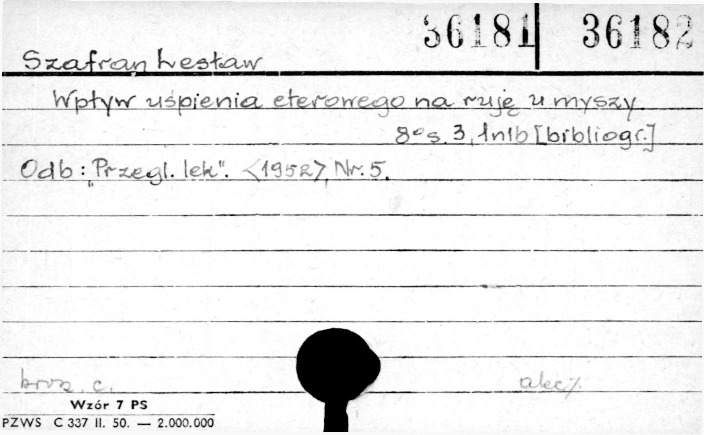 36181 36182
Szafran Lesław
Wpływ uśpienia eterowego na ruję u myszy.
8° s. 3, 1nlb [bibliogr.]
Odb: "Przegl. lek". <1952>, Nr. 5.
brosz. c. akc.
Wzór 7 PS
PZWS C 337 II. 50. — 2.000.000